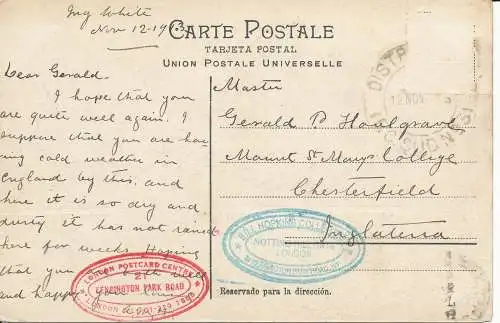 Ing White
Nov 12-1913
CARTE POSTALE
TARJETA POSTAL
UNION POSTALE UNIVERSELLE
Dear Gerald.
I hope that you
are quite well again. I
suppose that you are ha-
ving cold weather in
England by this, and
here it is so dry and
dusty it has not rained
here for weeks. Hoping
that you well
and happy
Master
Gerald P Houlgrave
Mount St Marys College
Chesterfield
Inglaterra
DISTR
12 NOV
LONDON POSTCARD CENTRE
21
KENSINGTON PARK ROAD
LONDON
BILL HOPKINS COLLE
NOTTING
LONDON
Reservado para la dirección.